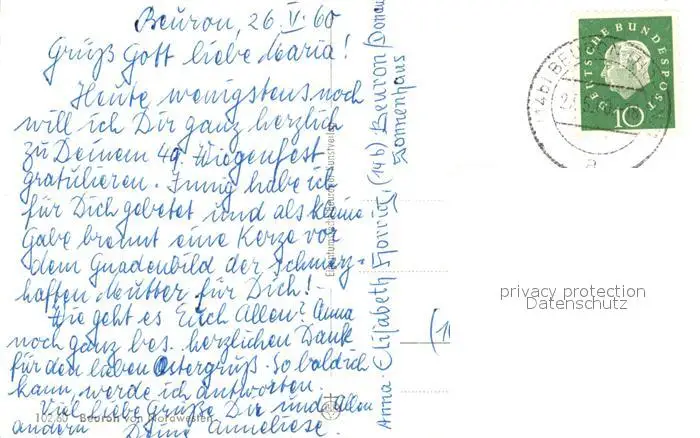 Beuron, 26. V. 60
Grüß Gott liebe Maria!
Heute wenigstens noch
will ich Dir ganz herzlich
zu Deinem 49. Wiegenfest
gratulieren. Innig habe ich
für Dich gebetet und als kleine
Gabe brennt eine Kerze vor
dem Gnadenbild der Schmerz-
haften Mutter für Dich! -
Wie geht es Euch Allen? Anna
noch ganz bes. herzlichen Dank
für den lieben Ostergruß. So bald ich
kann, werde ich antworten.
Viel liebe Grüße Dir und Allen
andern Deine Anneliese.
102,60 Beuron von Nordwesten
Beuroner Kunstverlag
Anna Elisabeth (14b) Beuron/Donau
Sonnenhaus
DEUTSCHE BUNDESPOST
10
(14b) BEURON
a
privacy protection
Datenschutz
(1